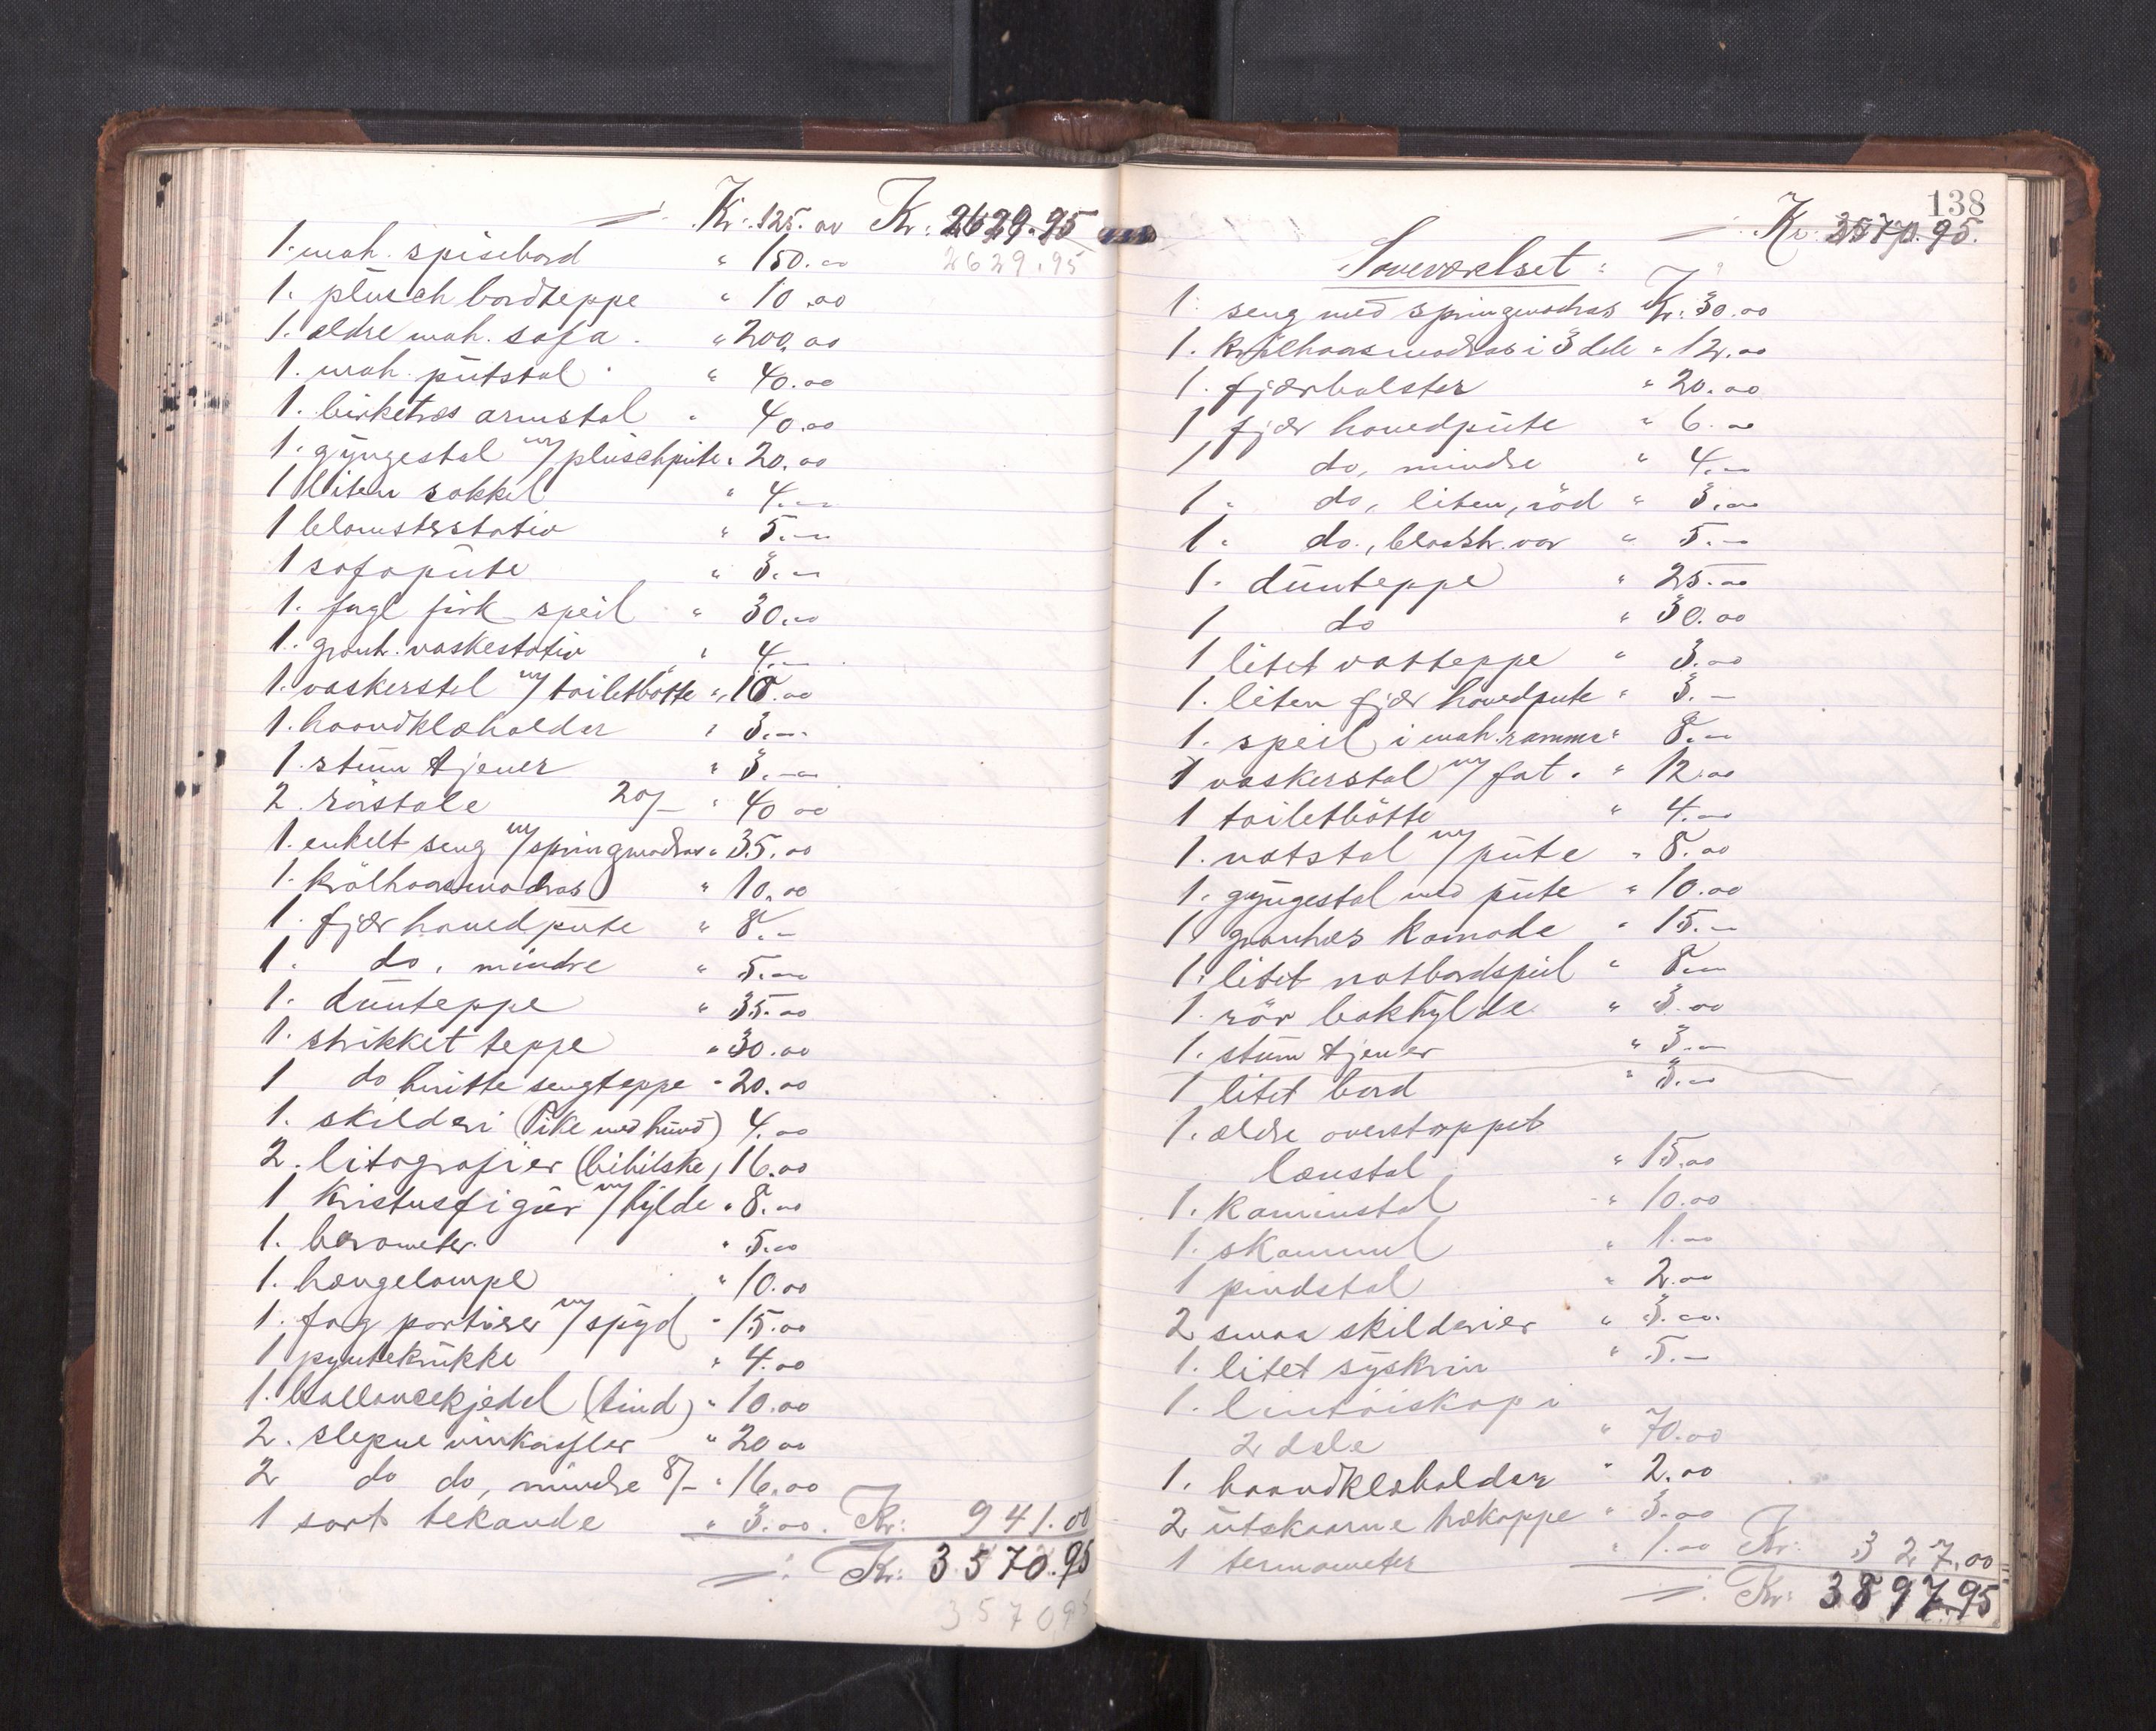 Kr. 125.00 Kr: 2629.95
2629.95
1. mah. spisebord " 150.00
1. plüsch bordteppe " 10.00
1. ældre mah. sofa. " 200.00
1. mah. pütstol " 40.00
1. birketræs armstol " 40.00
1. gyngestol m/ plüschpüte " 20.00
1 liten sokkel " 4.00
1 blomsterstativ " 5.00
1 sofapüte " 3.00
1. fugl jirk speil " 30.00
1. granh. vaskestativ " 4.00
1. vaskerstel m/ toiletbøtte " 10.00
1. haandklæholder " 3.00
1. stüm tjener " 3.00
2. rörstole 20/- " 40.00
1. enkelt seng m/ springmadras " 35.00
1. krölhaarsmadras " 10.00
1. fjær hovedpüte " 8.-
1. do, mindre " 5.00
1. dünteppe " 35.00
1. strikket teppe " 30.00
1 do hvitte sengteppe " 20.00
1. skilderi (Pike med hünd) 4.00
2. litografier (bibilske) 16.00
1 Kristusfigür m/ hylde " 8.00
1. barometer " 5.00
1. hængelampe " 10.00
1. fag portierer m/ spyd " 15.00
1 pyntekrükke " 4.00
1. ballancekjedel (tind) " 10.00
2. slepne vinkarafler " 20.00
2 do do, mindre 8/- " 16.00
1 sort tekande " 3.00. Kr: 941.00
Kr: 3570.95
3570.95
138
Kr. 3570.95.
Soveværelset:
1 seng med springmadras Kr: 30.00
1. krølhaarsmadras i 3 dele " 12.00
1. fjærbolster " 20.00
1 fjær hovedpüte " 6.00
1 do, mindre " 4.00
1 " do, liten, röd " 3.00
1 " do., blaastr. var " 5.-
1. dünteppe " 25.00
1 do " 30.00
1 litet vatteppe " 3.00
1. liten fjær hovedpute " 3.-
1. speil i mah. ramme " 8.00
1 vaskerstol m/ fat. " 12.00
1 toiletbötte " 4.00
1. natstol m/ püte " 8.00
1. gyngestol med püte " 10.00
1. granhæs komode " 15.-
1. litet natbordspeil " 8.00
1. rör bokhylde " 3.00
1. stüm tjener " 3.00
1 litet bord " 3.00
1. ældre overstoppet
lænstol " 15.00
1. Kaminstol " 10.00
1. skammel " 1.00
1 pindstol " 2.00
2 smaa skilderier " 3.00.
1. litet syskrin " 5.-
1. lintöiskap i
2 dele " 70.00
1. haandklæholder " 2.00
2 ütskaarne trækoppe " 3.00
1 termometer " 1.00 Kr: 327.00
Kr: 3897.95